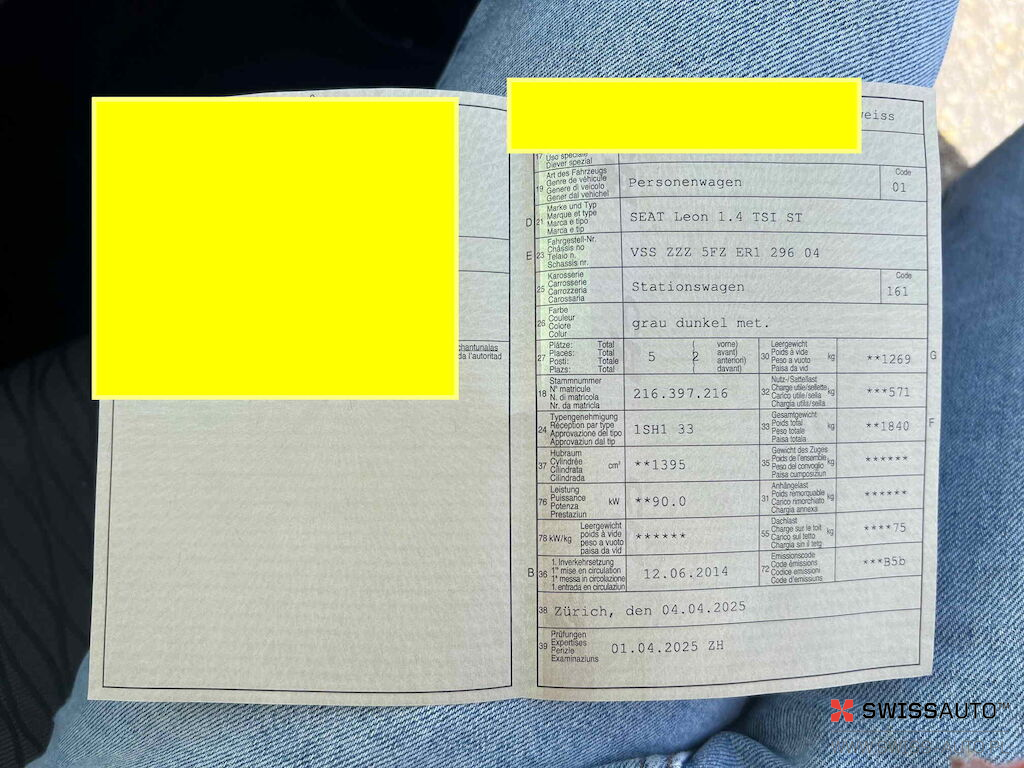 weiss
17 Uso speciale
Diever spezial
19 Art des Fahrzeugs
Genre de véhicule
Genere di veicolo
Gener dal vehichel
Personenwagen
Code
01
D 21 Marke und Typ
Marque et type
Marca e tipo
Marca e tip
SEAT Leon 1.4 TSI ST
E 23 Fahrgestell-Nr.
Châssis no
Telaio n.
Schassis nr.
VSS ZZZ 5FZ ER1 296 04
25 Karosserie
Carrosserie
Carrozzeria
Carossaria
Stationswagen
Code
161
26 Farbe
Couleur
Colore
Colur
grau dunkel met.
chantunalas
da l'autoritad
27 Plätze: Total
Places: Total
Posti: Totale
Plazs: Total
5 ( 2 vorne)
avant)
anteriori)
davant)
30 Leergewicht
Poids à vide
Peso a vuoto
Paisa da vid
kg
**1269
G
18 Stammnummer
N° matricule
N. di matricola
Nr. da matricla
216.397.216
32 Nutz-/Sattellast
Charge utile/sellette
Carico utile/sella
Chargia utila/sella
kg
***571
24 Typengenehmigung
Réception par type
Approvazione del tipo
Approvaziun dal tip
1SH1 33
33 Gesamtgewicht
Poids total
Peso totale
Paisa totala
kg
**1840
F
37 Hubraum
Cylindrée
Cilindrata
Cilindrada
cm³
**1395
35 Gewicht des Zuges
Poids de l'ensemble
Peso del convoglio
Paisa cumposiziun
kg
******
76 Leistung
Puissance
Potenza
Prestaziun
kW
**90.0
31 Anhängelast
Poids remorquable
Carico rimorchiato
Chargia annexa
kg
******
78 kW/kg Leergewicht
poids à vide
peso a vuoto
paisa da vid
******
55 Dachlast
Charge sur le toit
Carico sul tetto
Chargia sin il tetg
kg
****75
B 36 1. Inverkehrsetzung
1re mise en circulation
1a messa in circolazione
1. entrada en circulaziun
12.06.2014
72 Emissionscode
Code émissions
Codice emissioni
Code d'emissiuns
***B5b
38 Zürich, den 04.04.2025
39 Prüfungen
Expertises
Perizie
Examinaziuns
01.04.2025 ZH
SWISSAUTO